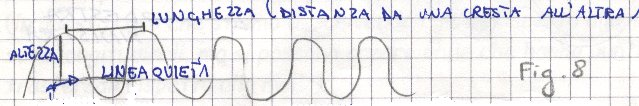 LUNGHEZZA (DISTANZA DA UNA CRESTA ALL'ALTRA)
ALTEZZA
LINEA QUIETA
Fig. 8